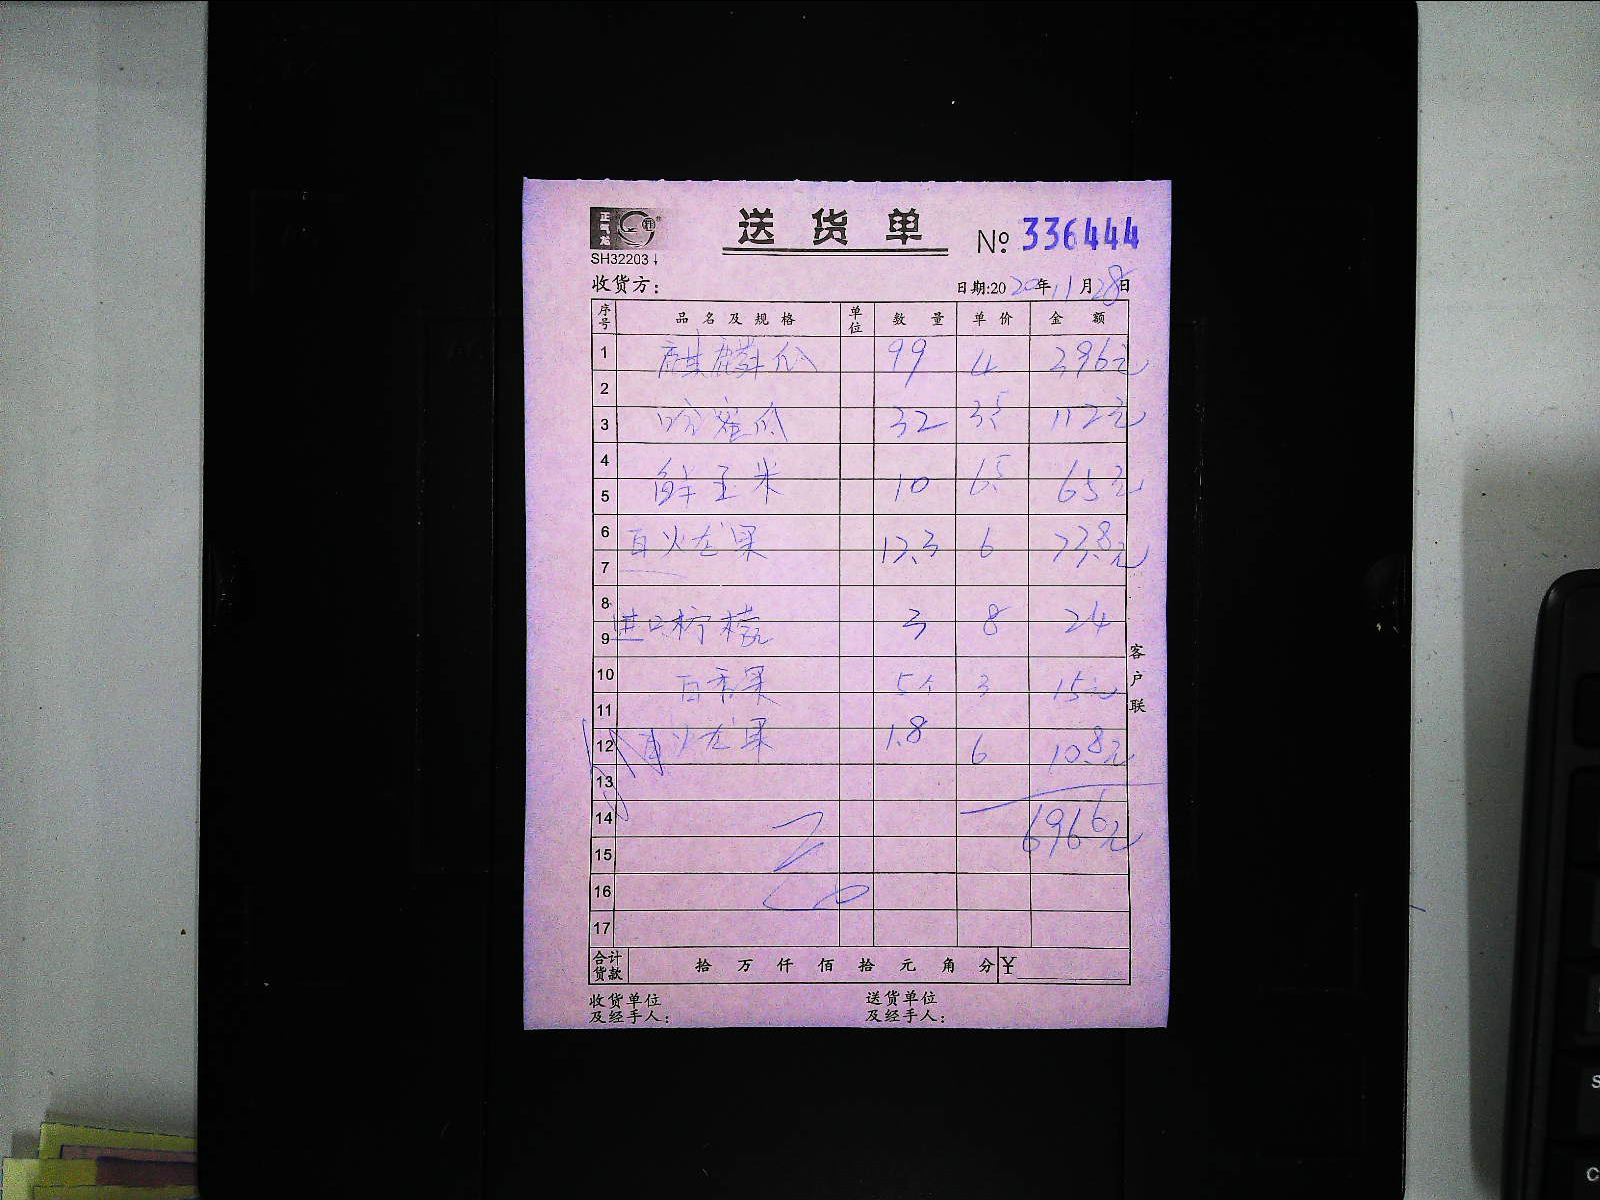 正气龙
SH32203
送 货 单
№ 336444
收货方：
日期:2020年11月28日
序号 品 名 及 规 格 单位 数 量 单 价 金 额
1 麒麟瓜 99 4 396元
2
3 哈密瓜 32 3.5 112元
4
5 鲜玉米 10 6.5 65元
6 白火龙果 12.3 6 73.8元
7
8
9 进口柠檬 3 8 24
10 百香果 5个 3 15元
11
12 白火龙果 1.8 6 10.8元
13
14 696.6元
15
16
17
合计货款 拾 万 仟 佰 拾 元 角 分 ¥
收货单位及经手人：
送货单位及经手人：
客户联